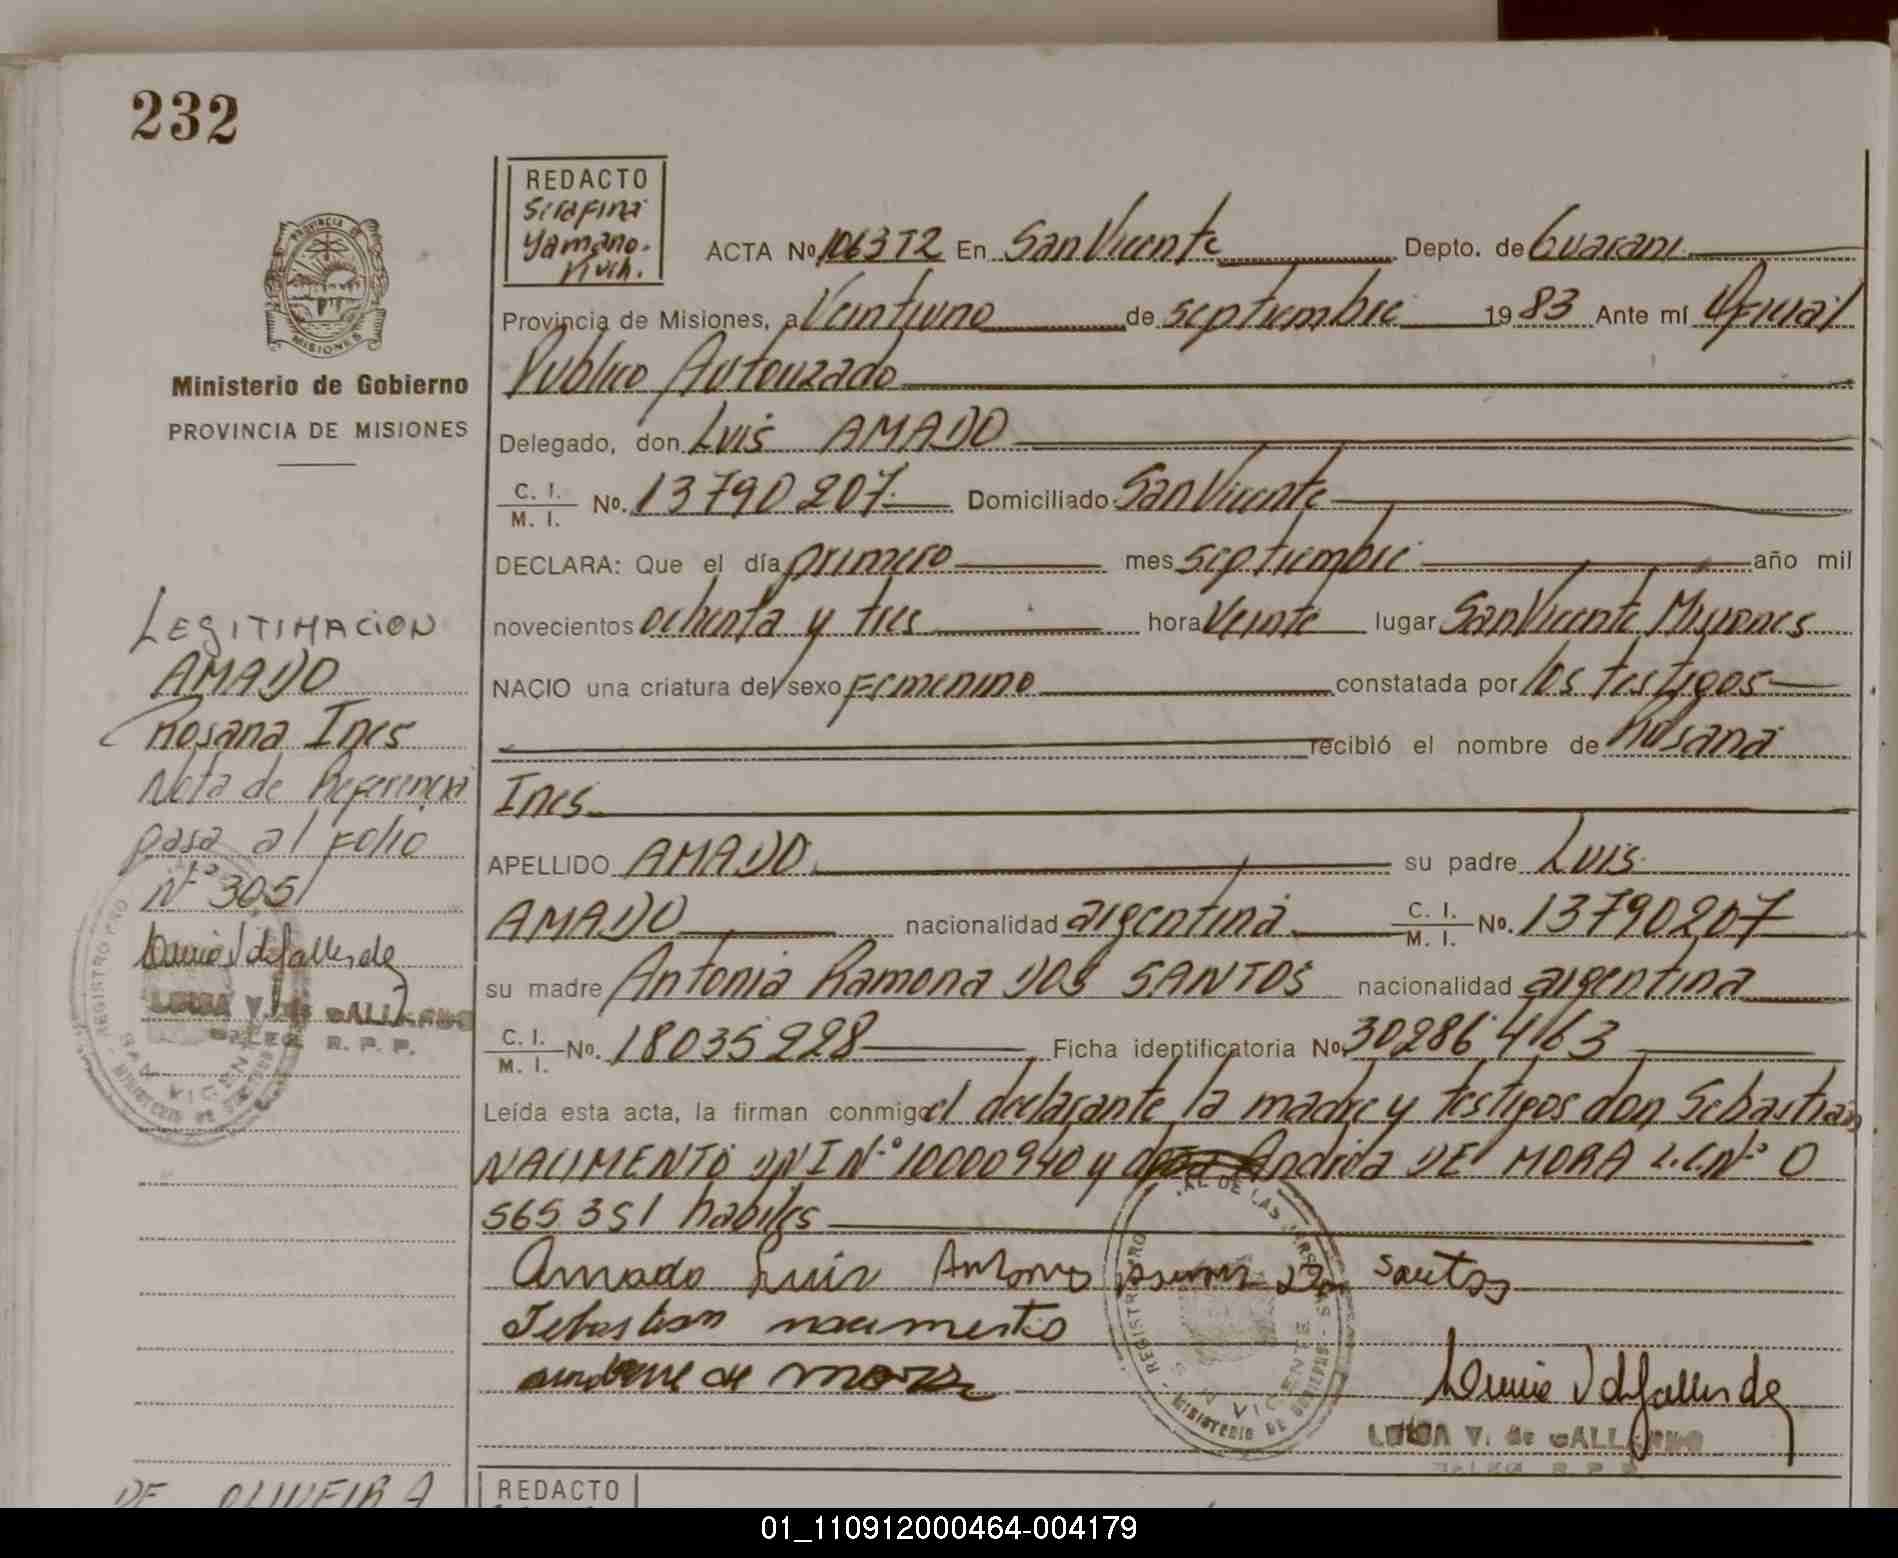 232
REDACTO
Serafina
Yamano.
PROVINCIA DE
MISIONES
Ministerio de Gobierno
PROVINCIA DE MISIONES
ACTA No 1063T2 En San Vicente Depto. de Guarani
Provincia de Misiones, a Veintiuno de septiembre 1983 Ante mí Oficial
Publico Autorizado
Delegado, don Luis AMADO
C. I. / M. I. No. 13790207 Domiciliado San Vicente
DECLARA: Que el día primero mes septiembre año mil
novecientos ochenta y tres hora Veinte lugar San Vicente Misiones
NACIO una criatura del sexo Femenino constatada por los testigos
recibió el nombre de Rosana
Ines
APELLIDO AMADO su padre Luis
AMADO nacionalidad argentina C. I. / M. I. No. 13790207
su madre Antonia Ramona DOS SANTOS nacionalidad argentina
C. I. / M. I. No. 18035228 Ficha identificatoria No. 30286463
Leída esta acta, la firman conmigo el declarante la madre y testigos don Sebastian
NACIMENTO DNI Nº 10000940 y doña Andrea DE MORA L.C. Nº 0
565351 habiles
Amado Luis Santos
Sebastian nacimento
de mora
LUISA V. de GALLARDO
R. P. P.
LEGITIMACION
AMADO
Rosana Ines
Nota de Referencia
pasa al Folio
nº 305
LUISA V. de GALLARDO
R. P. P.
SAN VICENTE
MINISTERIO DE GOBIERNO
DE OLIVEIRA
REDACTO
01_110912000464-004179